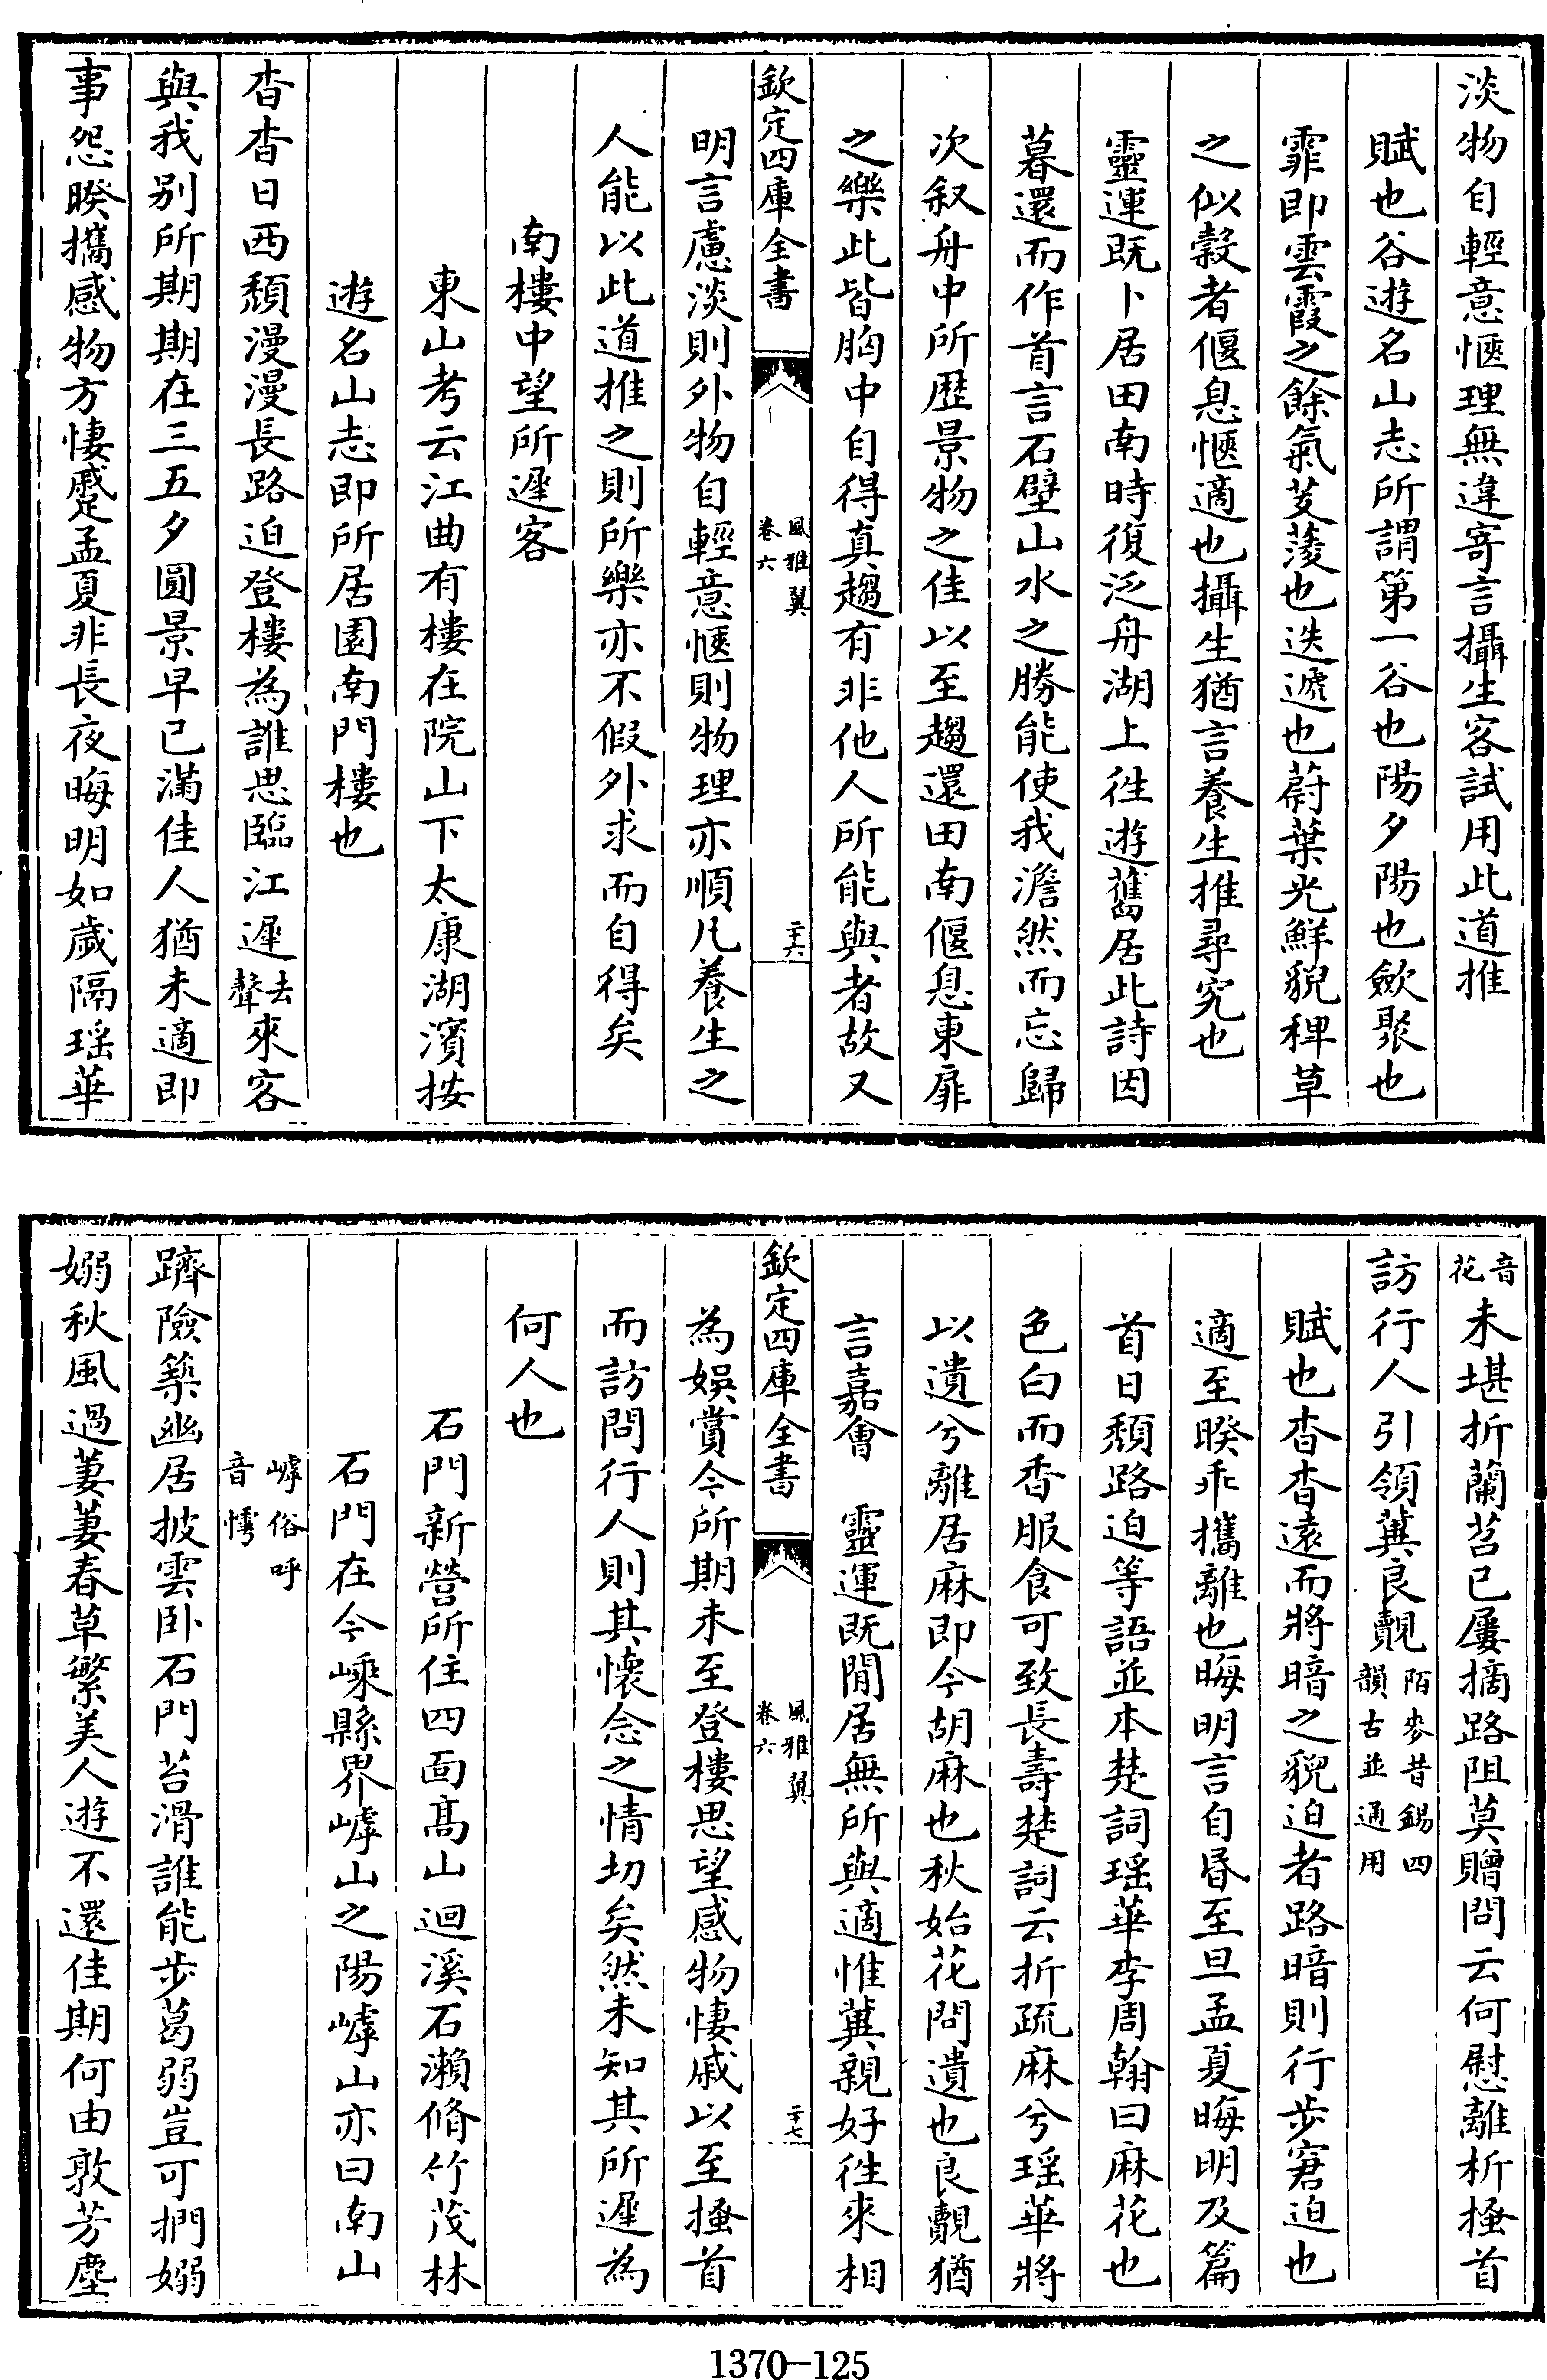 淡物自輕意愜理無違寄言攝生客試用此道推
賦也谷遊名山志所謂第一谷也陽夕陽也歛聚也
霏即雲霞之餘氣芰蔆也迭遞也蔚葉光鮮貌稗草
之似穀者偃息愜適也攝生猶言養生推尋究也
靈運既卜居田南時復泛舟湖上徃遊舊居此詩因
暮還而作首言石壁山水之勝能使我澹然而忘歸
次叙舟中所歴景物之佳以至趨還田南偃息東扉
之樂此皆胸中自得真趨有非他人所能與者故又
欽定四庫全書 風雅翼卷六 二十六
明言慮淡則外物自輕意愜則物理亦順凡養生之
人能以此道推之則所樂亦不假外求而自得矣
南樓中望所遲客
東山考云江曲有樓在院山下太康湖濱按
遊名山志即所居園南門樓也
杳杳日西頽漫漫長路迫登樓為誰思臨江遲去聲來客
與我别所期期在三五夕圓景早已滿佳人猶未適即
事怨睽攜感物方悽蹙孟夏非長夜晦明如歲隔瑶華
音花未堪折蘭苕已屢摘路阻莫贈問云何慰離析搔首
訪行人引領冀良覿陌麥昔錫四韻古並通用
賦也杳杳遠而將暗之貌迫者路暗則行步窘迫也
適至睽乖攜離也晦明言自昬至旦孟夏晦明及篇
首日頽路迫等語並本楚詞瑶華李周翰曰麻花也
色白而香服食可致長壽楚詞云折疏麻兮瑶華將
以遺兮離居麻即今胡麻也秋始花問遺也良覿猶
言嘉會 靈運既閒居無所與適惟冀親好徃來相
欽定四庫全書 風雅翼卷六 二十七
為娛賞今所期未至登樓思望感物悽戚以至搔首
而訪問行人則其懷念之情切矣然未知其所遲為
何人也
石門新營所住四面髙山迴溪石瀨脩竹茂林
石門在今嵊縣界㟧山之陽㟧山亦曰南山
㟧俗呼音愕
躋險築幽居披雲卧石門苔滑誰能步葛弱豈可捫嫋
嫋秋風過萋萋春草繁美人遊不還佳期何由敦芳塵
1370—125